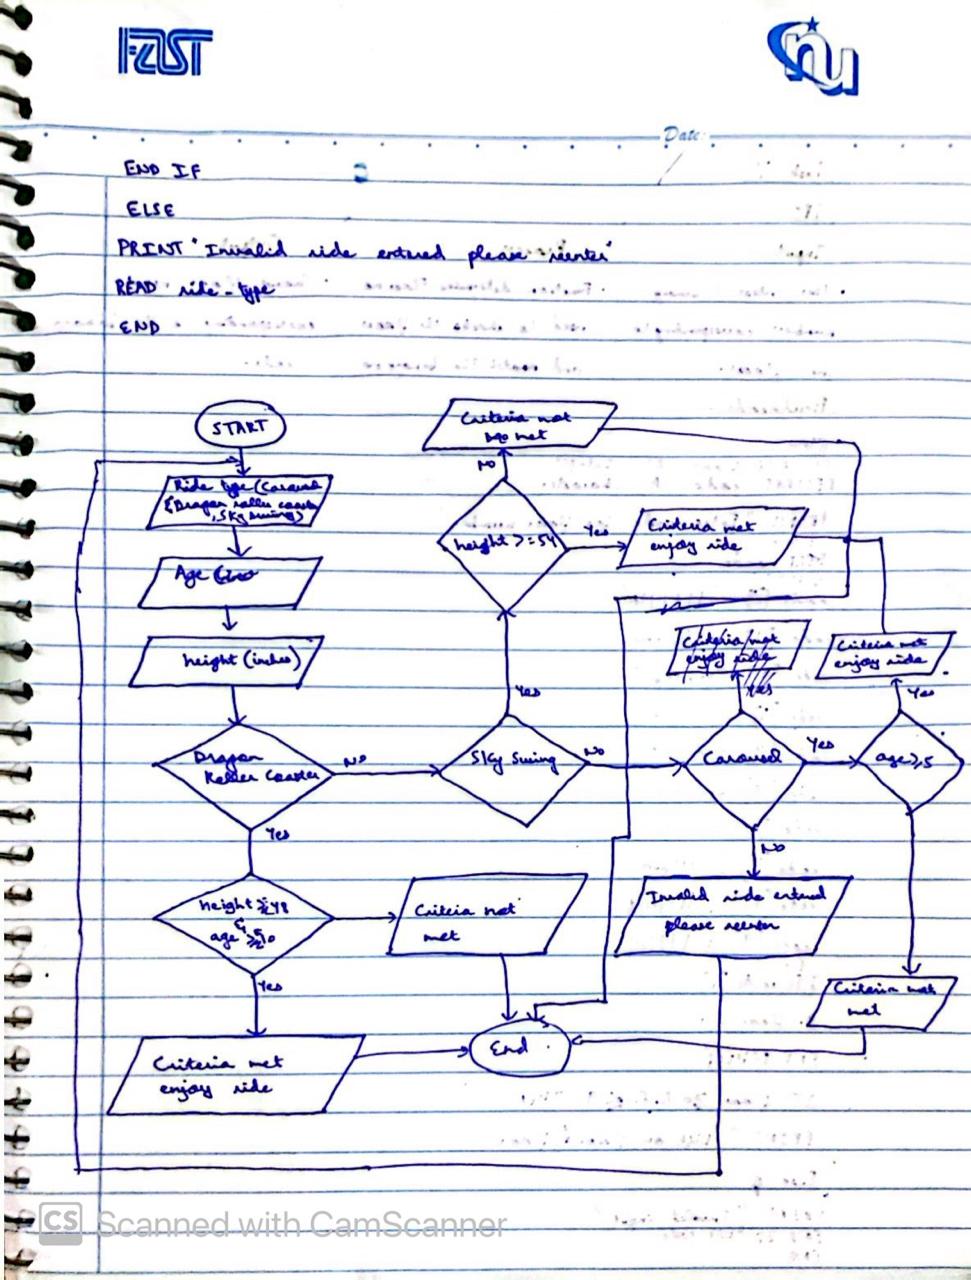 FAST
nu
Date:
END IF
ELSE
PRINT "Invalid ride entered please reenter"
READ ride-type
END
START
Ride type (Carousel
& Dragon roller coaster
, Sky swing)
Age
height (inches)
Dragon
Roller Coaster
No
Yes
height ≥ 48
&
age ≥ 10
Yes
Criteria met
enjoy ride
Criteria not
met
End
Sky Swing
Yes
No
height >= 54
No
Yes
Criteria not
met
Criteria met
enjoy ride
Carousel
Yes
No
Criteria met
enjoy ride
Yes
Invalid ride entered
please reenter
age ≥ 5
Yes
Criteria met
enjoy ride
Criteria not
met
CS Scanned with CamScanner